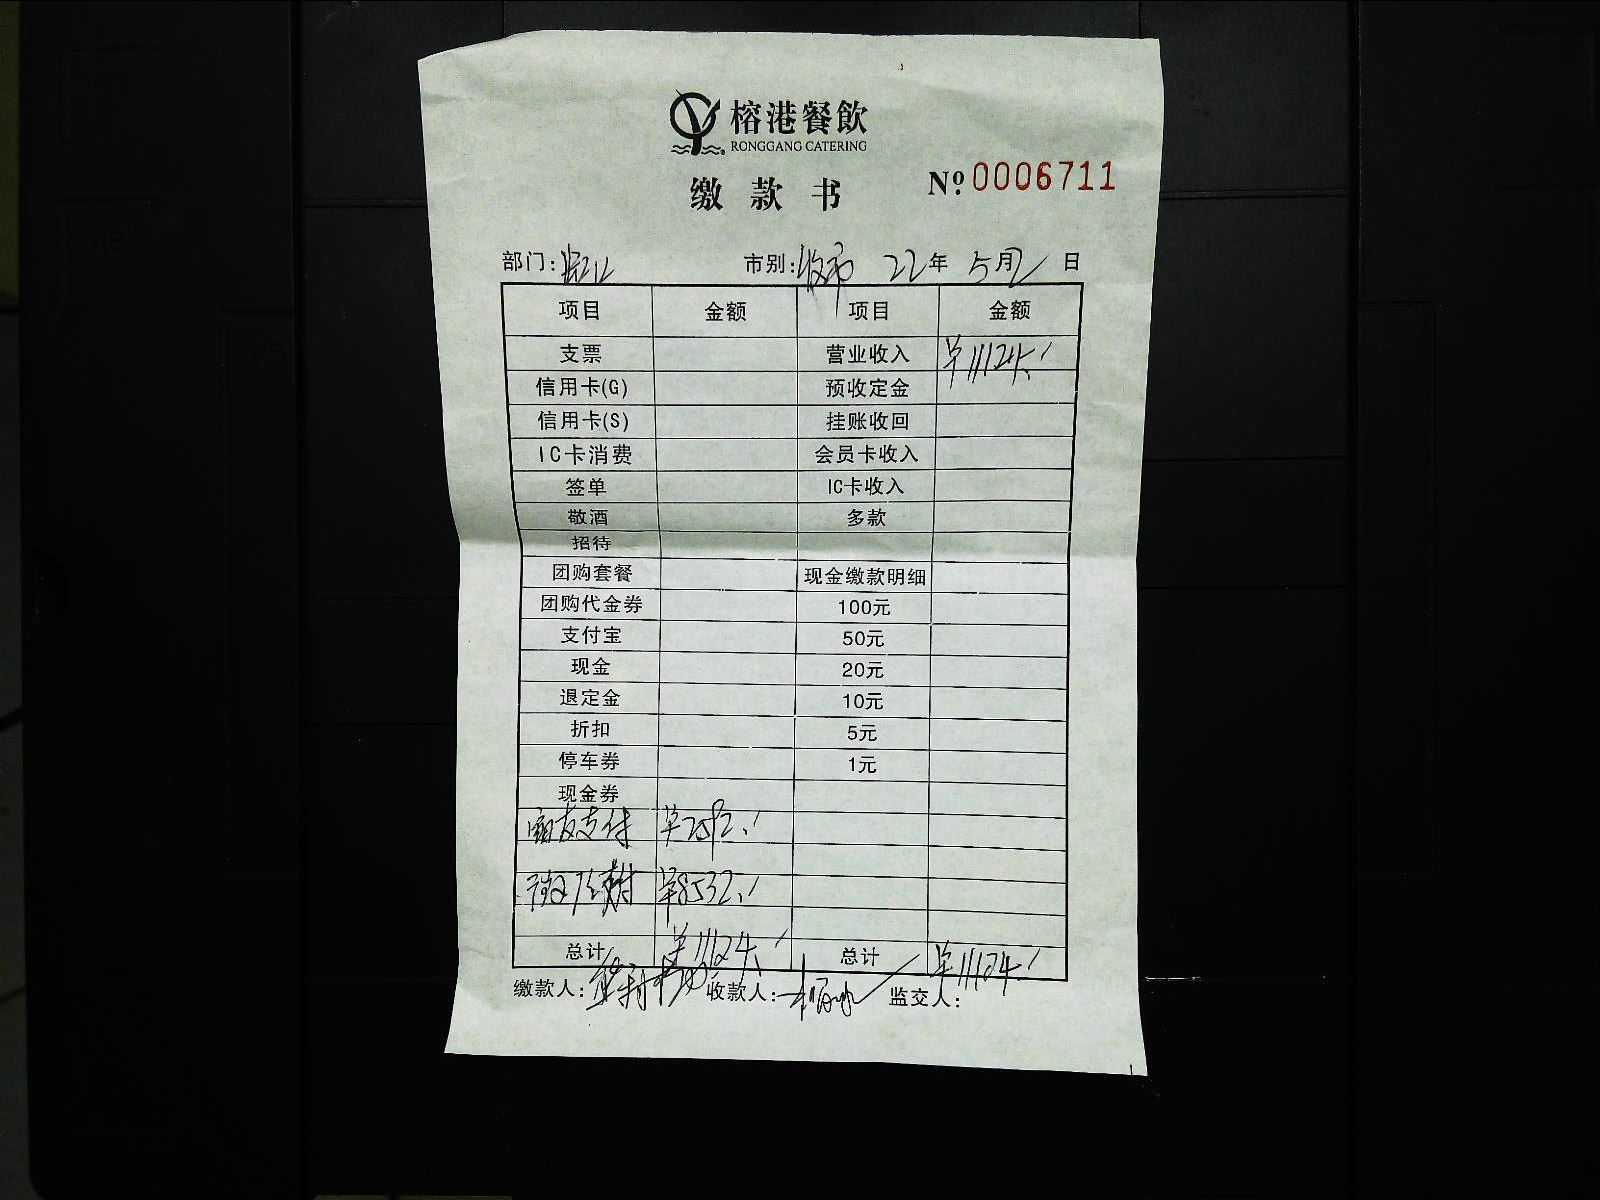 榕港餐飲
RONGGANG CATERING
缴款书
Nº 0006711
部门: 市别:收市 22年 5月2日
项目 金额 项目 金额
支票 营业收入 ¥11124.
信用卡(G) 预收定金
信用卡(S) 挂账收回
IC卡消费 会员卡收入
签单 IC卡收入
敬酒 多款
招待
团购套餐 现金缴款明细
团购代金券 100元
支付宝 50元
现金 20元
退定金 10元
折扣 5元
停车券 1元
现金券
支付 ¥2592.
¥8532.
总计 ¥11124. 总计 ¥11124.
缴款人: 收款人: 监交人: